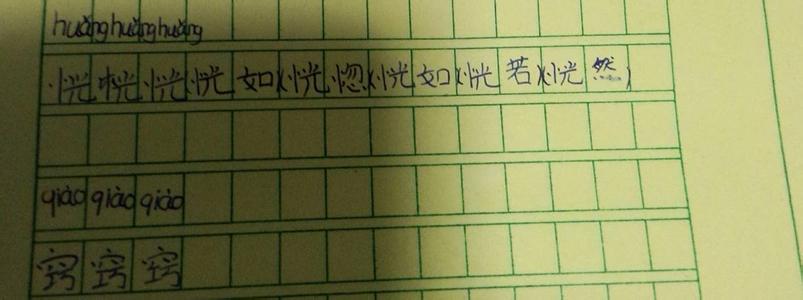 huǎnghuǎnghuǎng
恍恍恍恍如(恍惚(恍如(恍若(恍然)
qiào qiào qiào
窍窍窍